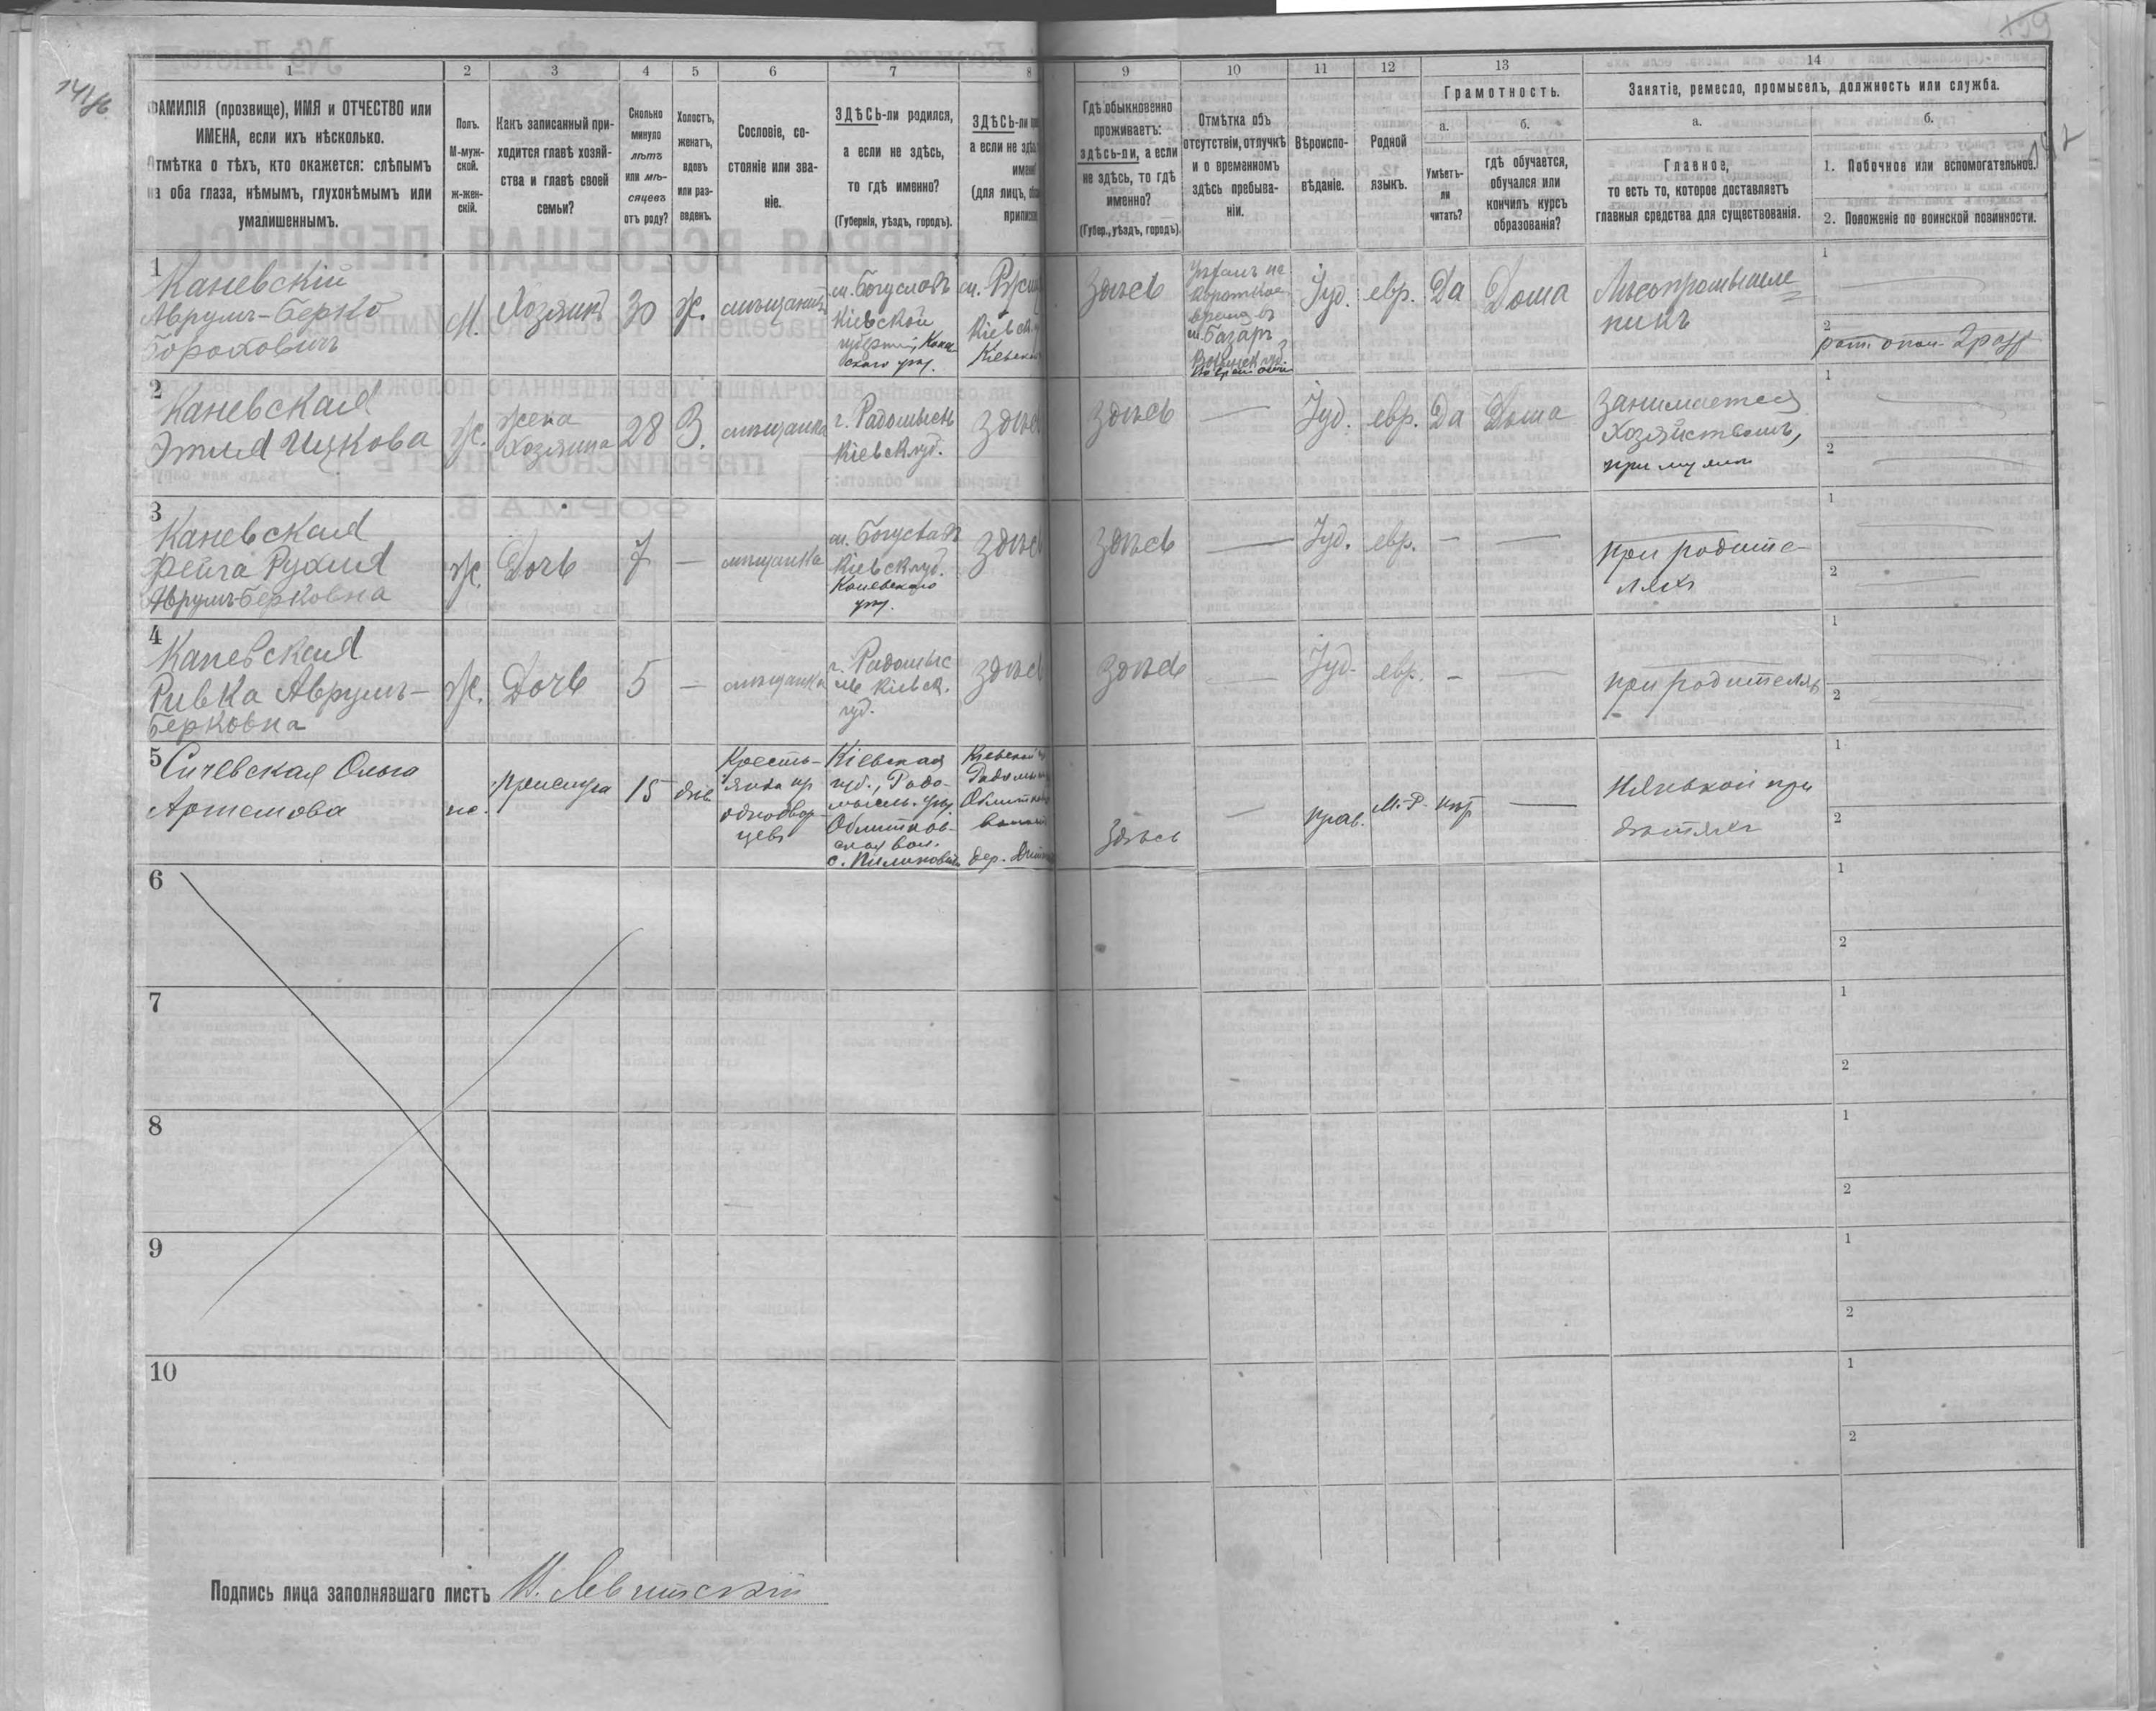 141/б
159
142
1 2 3 4 5 6 7 8 9 10 11 12 13 14
ФАМИЛІЯ (прозвище), ИМЯ и ОТЧЕСТВО или
ИМЕНА, если ихъ нѣсколько.
Отмѣтка о тѣхъ, кто окажется: слѣпымъ
на оба глаза, нѣмымъ, глухонѣмымъ или
умалишеннымъ.
Полъ.
М-муж-
ской.
ж-жен-
скій.
Какъ записанный при-
ходится главѣ хозяй-
ства и главѣ своей
семьи?
Сколько
минуло
лѣтъ
или мѣ-
сяцевъ
отъ роду?
Холостъ,
женатъ,
вдовъ
или раз-
веденъ.
Сословіе, со-
стояніе или зва-
ніе.
ЗДѢСЬ-ли родился,
а если не здѣсь,
то гдѣ именно?
(Губернія, уѣздъ, городъ).
ЗДѢСЬ-ли
а если не
(для лицъ,
Гдѣ обыкновенно
проживаетъ:
здѣсь-ли, а если
не здѣсь, то гдѣ
именно?
(Губер., уѣздъ, городъ).
Отмѣтка объ
отсутствіи, отлучкѣ
и о временномъ
здѣсь пребыва-
ніи.
Вѣроиспо-
вѣданіе.
Родной
языкъ.
Грамотность.
а.
Умѣетъ-
ли
читать?
б.
гдѣ обучается,
обучался или
кончилъ курсъ
образованія?
Занятіе, ремесло, промыселъ, должность или служба.
а.
Главное,
то есть то, которое доставляетъ
главныя средства для существованія.
б.
1. Побочное или вспомогательное.
2. Положеніе по воинской повинности.
1
Каневскій
Аврумъ-Берко
Бороховичъ
М.
Хозяинъ
30
Ж.
мѣщанинъ
м. Богуславъ
Кіевской
губерніи, Канев
скаго уѣз.
м.
Кіевск.
Здѣсь
время въ
м. Базаръ
Іуд.
евр.
Да
Дома
Лѣсопромышле
никъ
1
2
рат. опол. 2 разр
2
Каневская
Этля Ицкова
Ж.
жена
Хозяина
28
З.
мѣщанка
г. Радомысль
Кіевск. губ.
Здѣсь
Здѣсь
—
Іуд.
евр.
Да
Дома
Занимается
Хозяйствомъ,
при мужѣ
1
2
3
Каневская
Фейга Рухля
Аврумъ-Берковна
Ж.
Дочь
7
—
мѣщанка
м. Богуславъ
Кіевск. губ.
Каневскаго
уѣз.
Здѣсь
Здѣсь
—
Іуд.
евр.
—
—
При родите-
ляхъ
1
2
4
Каневская
Ривка Аврумъ-
Берковна
Ж.
Дочь
5
—
мѣщанка
г. Радомыс
ль Кіевск.
губ.
Здѣсь
Здѣсь
—
Іуд.
евр.
—
—
При родителяхъ
1
2
5
Сичевская Ольга
Артемова
ж.
прислуга
15
дѣв.
Кресть-
янка из
однодвор-
цевъ
Кіевская
губ., Радо-
мысль. уѣз
Облитков-
ская вол.
Кіевской
дер.
Здѣсь
—
прав.
М.-Р.
нѣт
—
Нянькой при
дѣтяхъ
1
2
6
1
2
7
1
2
8
1
2
9
1
2
10
1
2
Подпись лица заполнявшаго листъ